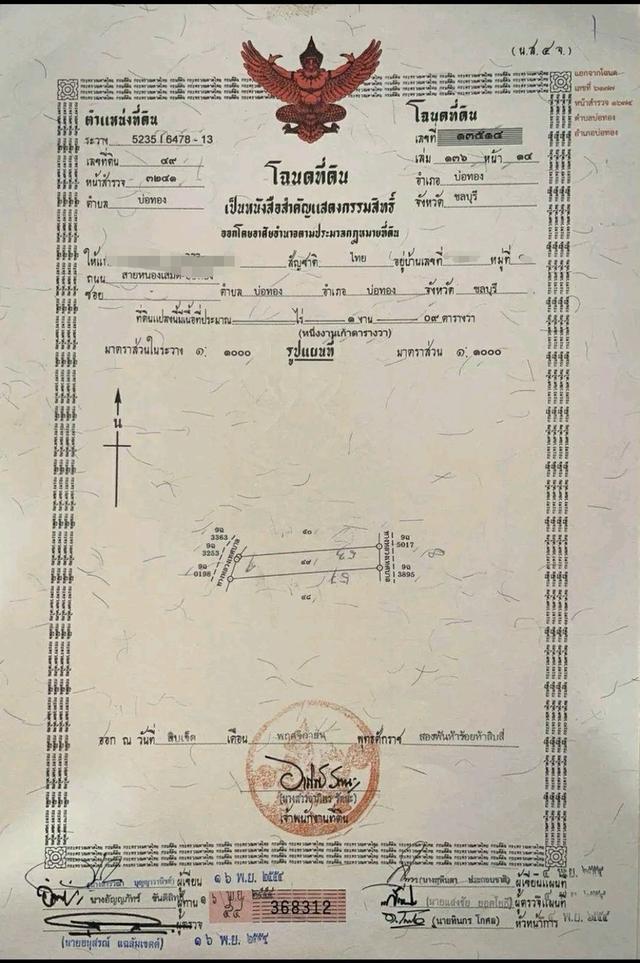 (น.ส.๔ จ.)
แยกจากโฉนด
เลขที่
หน้าสำรวจ ๑๖๗๙๔
ตำบลบ่อทอง
อำเภอบ่อทอง
ตำแหน่งที่ดิน
ระวาง 5235 I 6478 - 13
เลขที่ดิน ๔๙
หน้าสำรวจ ๓๒๔๑
ตำบล บ่อทอง
โฉนดที่ดิน
เลขที่ ๑๓๕๑๔
เล่ม ๑๓๖ หน้า ๑๔
อำเภอ บ่อทอง
จังหวัด ชลบุรี
โฉนดที่ดิน
เป็นหนังสือสำคัญแสดงกรรมสิทธิ์
ออกโดยอาศัยอำนาจตามประมวลกฎหมายที่ดิน
ให้แก่ สัญชาติ ไทย อยู่บ้านเลขที่ หมู่ที่
ถนน
ซอย - ตำบล บ่อทอง อำเภอ บ่อทอง จังหวัด ชลบุรี
ที่ดินแปลงนี้มีเนื้อที่ประมาณ - ไร่ ๑ งาน ๐๙ ตารางวา
(หนึ่งงานเก้าตารางวา)
มาตราส่วนในระวาง ๑: ๑๐๐๐ รูปแผนที่ มาตราส่วน ๑: ๑๐๐๐
น
9ฉ
3363
9ฉ
3253
9ฉ
0198
ทางหลวงเทศบาล
๕๐
๔๙
๔๘
ทางหลวงเทศบาล
9ฉ
5017
9ฉ
3895
ออก ณ วันที่ สิบเจ็ด เดือน พฤศจิกายน พุทธศักราช สองพันห้าร้อยห้าสิบสี่
เจ้าพนักงานที่ดิน
ผู้เขียน ๑๖ พ.ย. ๒๕๕๔
นางอัญญภัทร์
ผู้ทาน
ผู้ตรวจ
๑๖ พ.ย. ๒๕๕๔
368312
ผู้เขียนแผนที่
ผู้ตรวจแผนที่
(นายทินกร โกศล) หัวหน้าการ